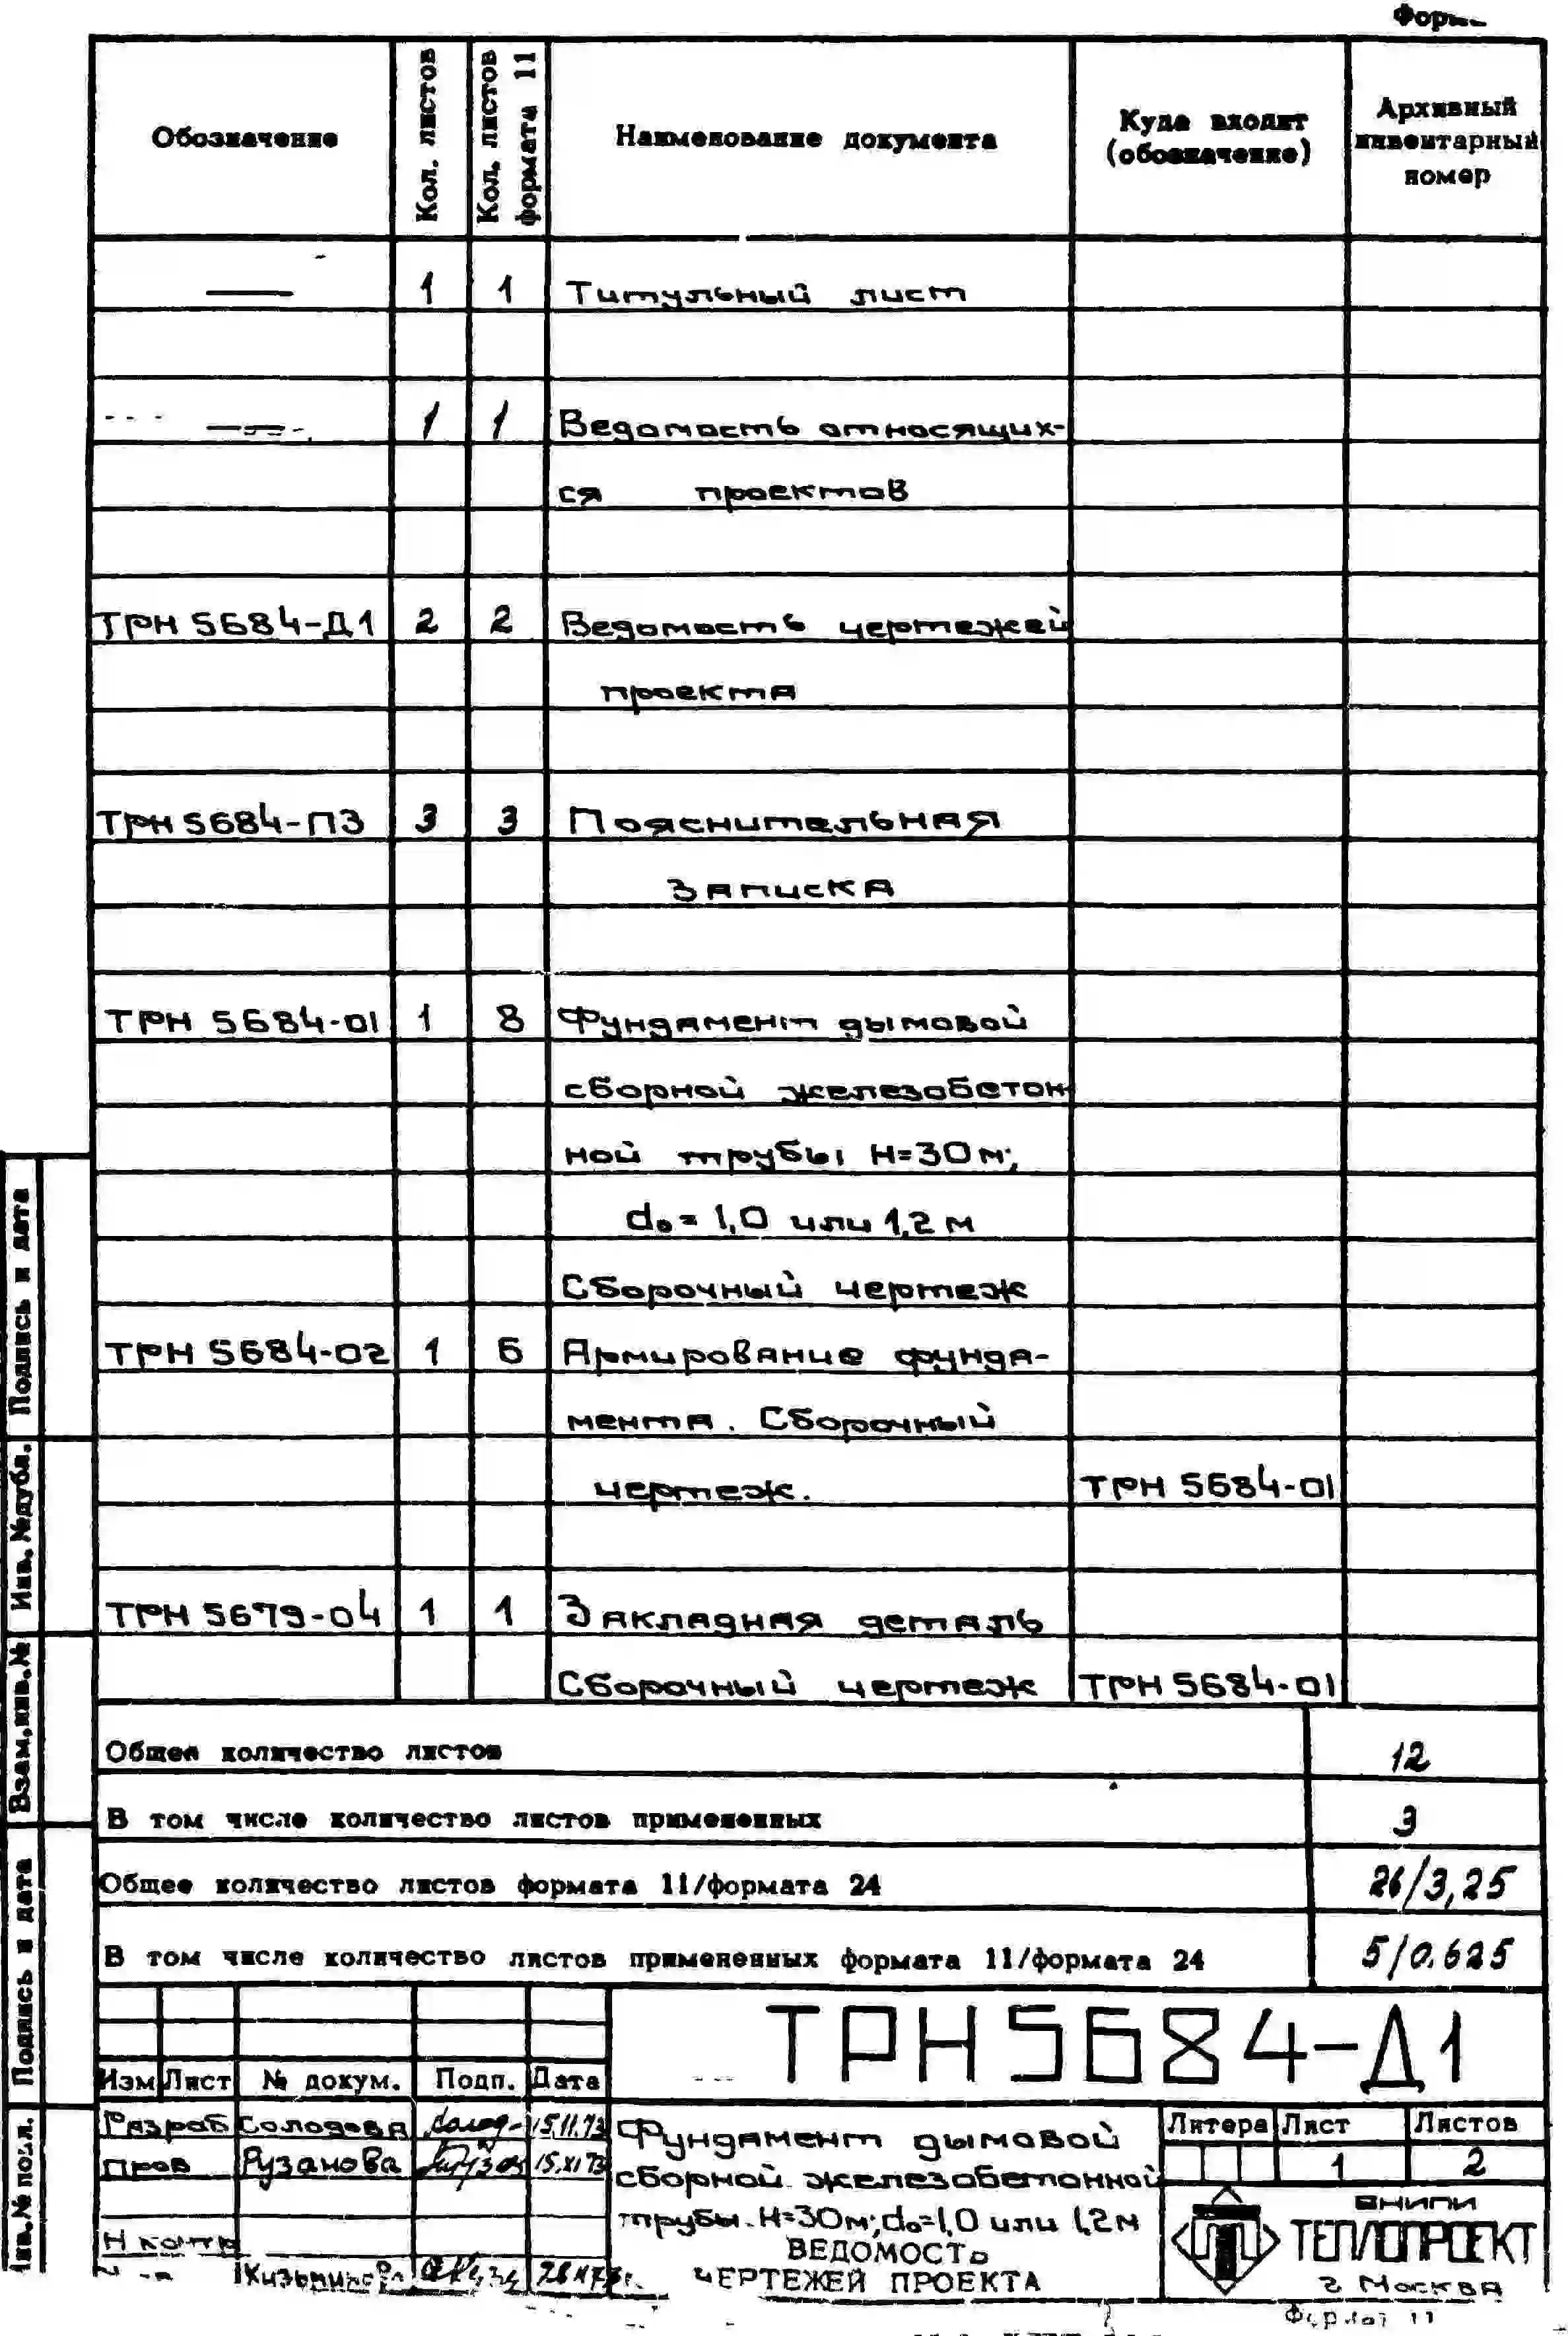 Обозначение
Кол. листов
Кол. листов формата 11
Наименование документа
Куда входит
(обозначение)
Архивный
инвентарный
номер
— 1 1 Титульный лист
— 1 1 Ведомость относящих-
ся проектов
ТРН 5684-Д1 2 2 Ведомость чертежей
проекта
ТРН 5684-ПЗ 3 3 Пояснительная
записка
ТРН 5684-01 1 8 Фундамент дымовой
сборной железобетон
ной трубы H=30м;
d₀=1,0 или 1,2 м
Сборочный чертеж
ТРН 5684-02 1 6 Армирование фунда-
мента. Сборочный
чертеж. ТРН 5684-01
ТРН 5679-04 1 1 Закладная деталь
Сборочный чертеж ТРН 5684-01
Общее количество листов 12
В том числе количество листов примененных 3
Общее количество листов формата 11/формата 24 26/3,25
В том числе количество листов примененных формата 11/формата 24 5/0.625
Подпись и дата
Инв. №дубл.
Взам.инв.№
Подпись и дата
Инв.№ подл.
ТРН5684-Д1
Изм Лист № докум. Подп. Дата
Разраб Солодова 15.11.73
Пров Рузанова 15.XI 73
Н контр
Фундамент дымовой
сборной железобетонной
трубы. H=30м; d₀=1,0 или 1,2м
ВЕДОМОСТЬ
ЧЕРТЕЖЕЙ ПРОЕКТА
Литера Лист Листов
1 2
ВНИПИ
ТЕПЛОПРОЕКТ
г Москва
Формат 11